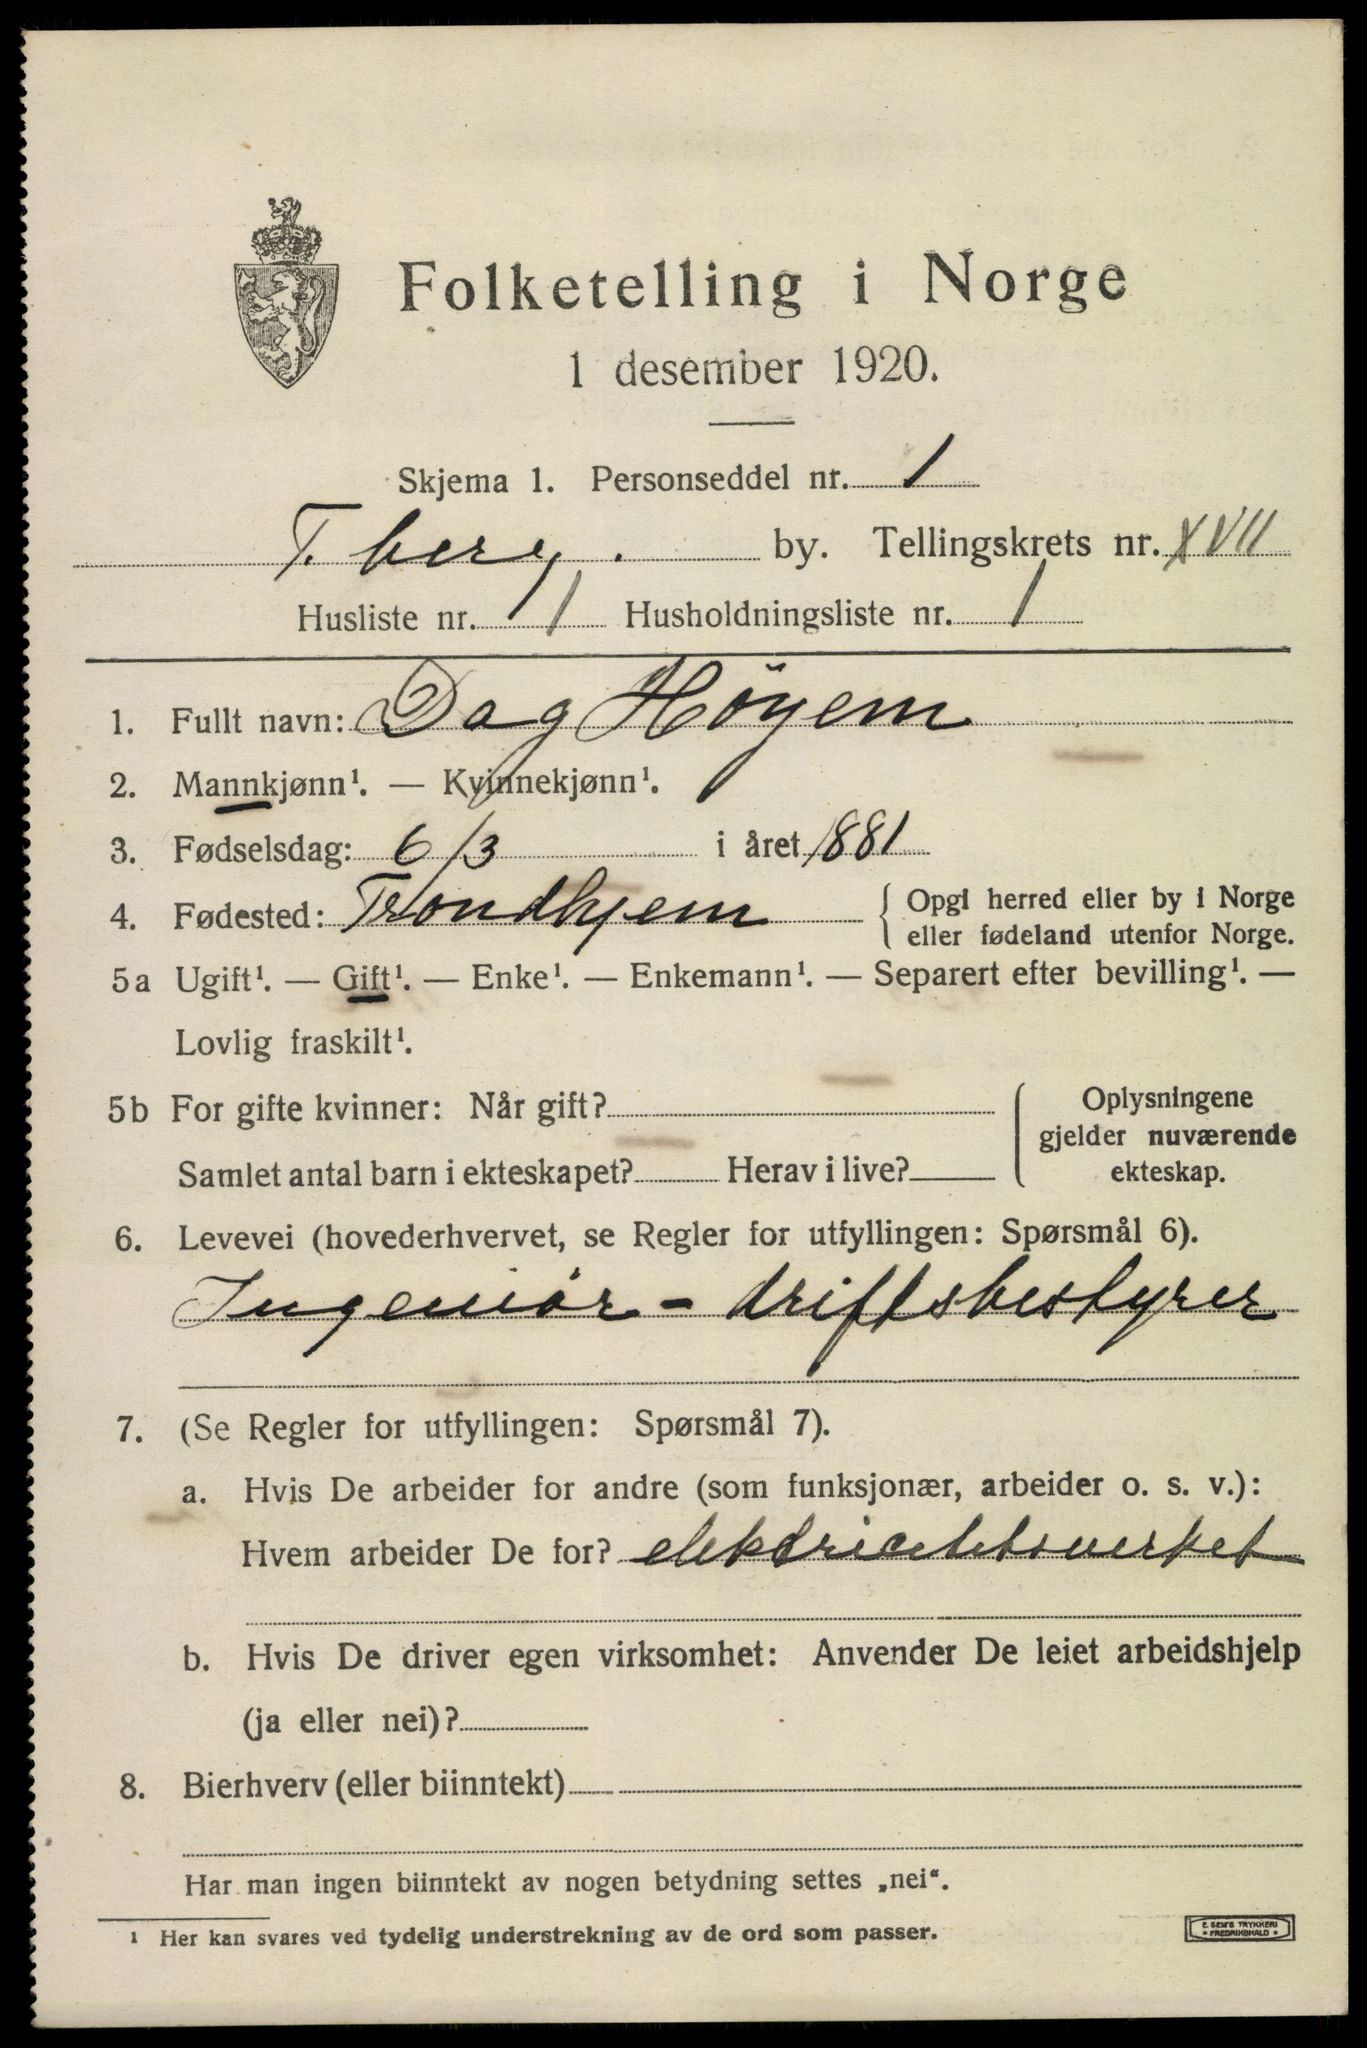 Folketelling i Norge
1 desember 1920.
Skjema 1. Personseddel nr. 1
T.berg. by. Tellingskrets nr. XVII
Husliste nr. 1 Husholdningsliste nr. 1
1. Fullt navn: Dag Höyem
2. Mannkjønn¹. — Kvinnekjønn¹.
3. Fødselsdag: 6/3 i året 1881
4. Fødested: Trondhjem { Opgi herred eller by i Norge
eller fødeland utenfor Norge.
5a Ugift¹. — Gift¹. — Enke¹. — Enkemann¹. — Separert efter bevilling¹. —
Lovlig fraskilt¹.
5b For gifte kvinner: Når gift? { Oplysningene
gjelder nuværende
Samlet antal barn i ekteskapet? Herav i live? ekteskap.
6. Levevei (hovederhvervet, se Regler for utfyllingen: Spørsmål 6).
Ingeniör - driftsbestyrer
7. (Se Regler for utfyllingen: Spørsmål 7).
a. Hvis De arbeider for andre (som funksjonær, arbeider o. s. v.):
Hvem arbeider De for? elektricitetsverket
b. Hvis De driver egen virksomhet: Anvender De leiet arbeidshjelp
(ja eller nei)?
8. Bierhverv (eller biinntekt) —
Har man ingen biinntekt av nogen betydning settes „nei“.
¹ Her kan svares ved tydelig understrekning av de ord som passer.
E. SEM'S TRYKKERI
• FREDRIKSHALD •